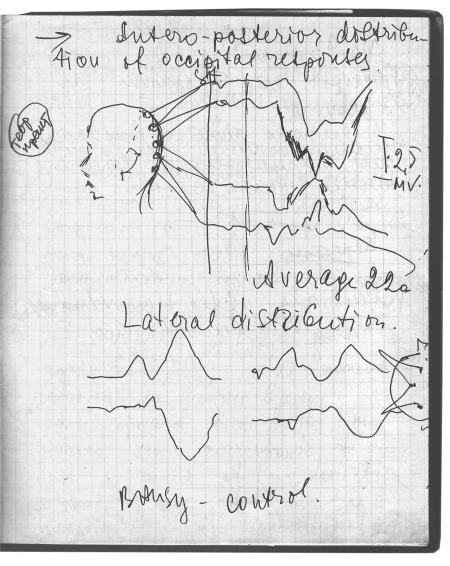 → Antero-posterior distribu-
tion of occipital responses.
St
2,5
mv.
Average 220
Lateral distribution.
control.